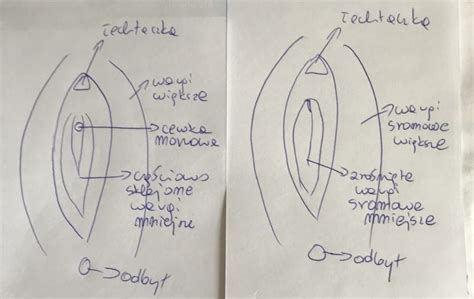 Łechtaczka
wargi
większe
cewka
moczowa
częściowo
sklejone
wargi
mniejsze
odbyt
Łechtaczka
wargi
sromowe
większe
zrośnięte
wargi
sromowe
mniejsze
odbyt